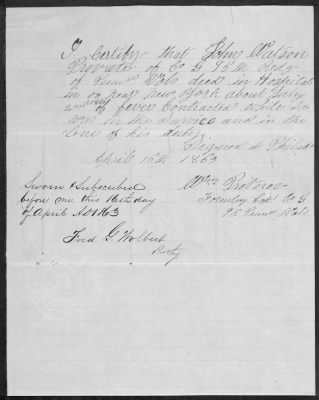 I Certify that John Watson
Private of Co G 95th Regt
of Penna Vols died in Hospital
in or near New York about July
2nd 1862 of fever contracted while he
was in the service and in the
line of his duty
Signed at Philada
April 16th 1863
Sworn & Subscribed
before me this 16th day
of April AD 1863
Wm
Formerly Capt Co G
95 Penna Vols
Fred G. Wolbert
Prothy